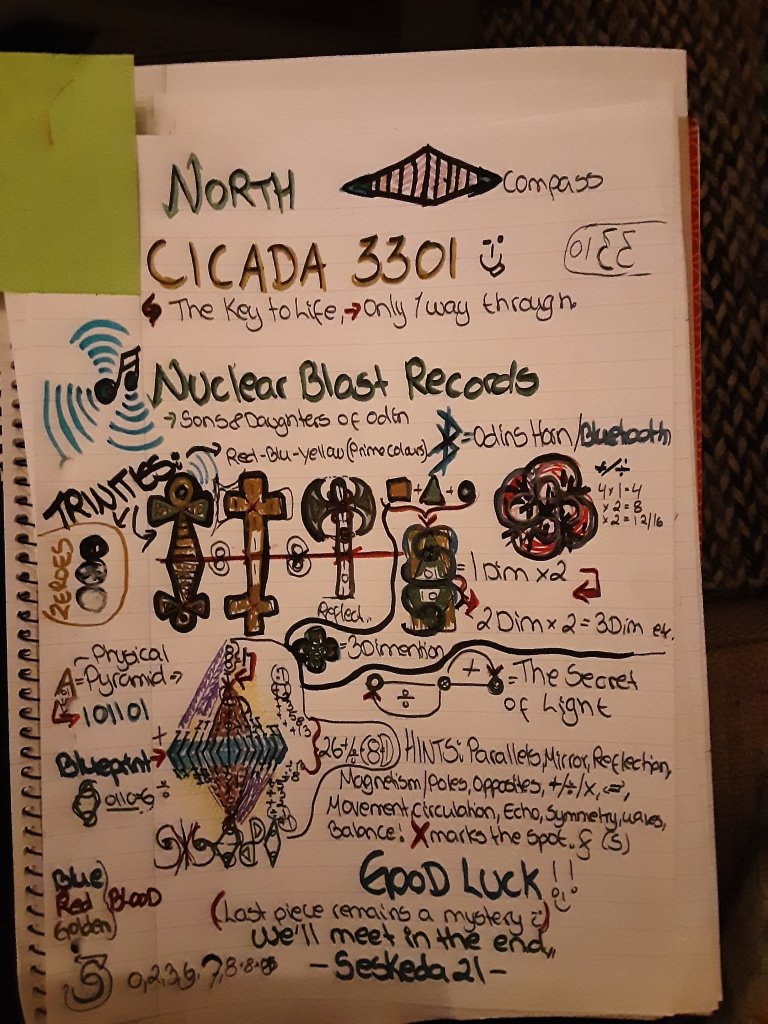 NORTH
Compass
CICADA 3301
The Key to Life, → Only 1 way through
Nuclear Blast Records
→ Sons & Daughters of Odin
Red-Blu-yellow (Prime colours)
= Odins Horn/Bluetooth
TRINITIES:
+/÷
4 x 1 = 4
x 2 = 8
x 2 = 12/16
ZEROES
= 1 Dim x 2
Reflect..
2 Dim x 2 = 3 Dim et.
= 3 Dimention
~ Physical
= Pyramid →
101101
= The Secret
of Light
Blueprint
HINTS: Parallels, Mirror, Reflection,
Magnetism/Poles, Opposites, +/÷/x, <=>,
Movement, Circulation, Echo, Symmetry, waves,
Balance! X marks the spot. & (S)
GOOD LUCK !!
Blue
Red
Golden
BLOOD
(Last piece remains a mystery :))
We'll meet in the end,,
- Seskeda 21 -